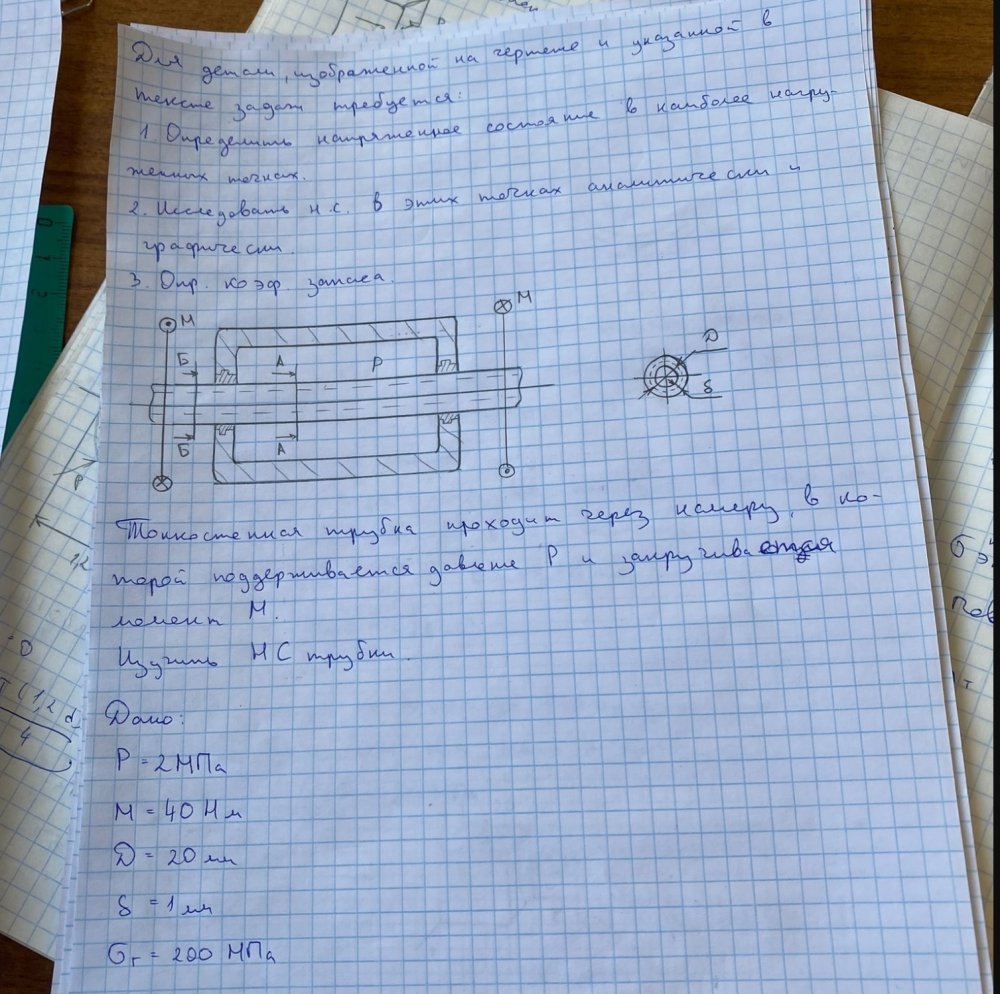 Для детали, изображенной на чертеже и указанной в
тексте задач требуется:
1. Определить напряженное состояние в наиболее нагру-
женных точках.
2. Исследовать н.с. в этих точках аналитически и
графически.
3. Опр. коэф запаса.
М
М
Б
А
Р
Б
А
D
δ
Тонкостенная трубка проходит через камеру, в ко-
торой поддерживается давление Р и закручивается
момент М.
Изучить НС трубки.
Дано:
Р = 2 МПа
М = 40 Нм
D = 20 мм
δ = 1 мм
σт = 200 МПа